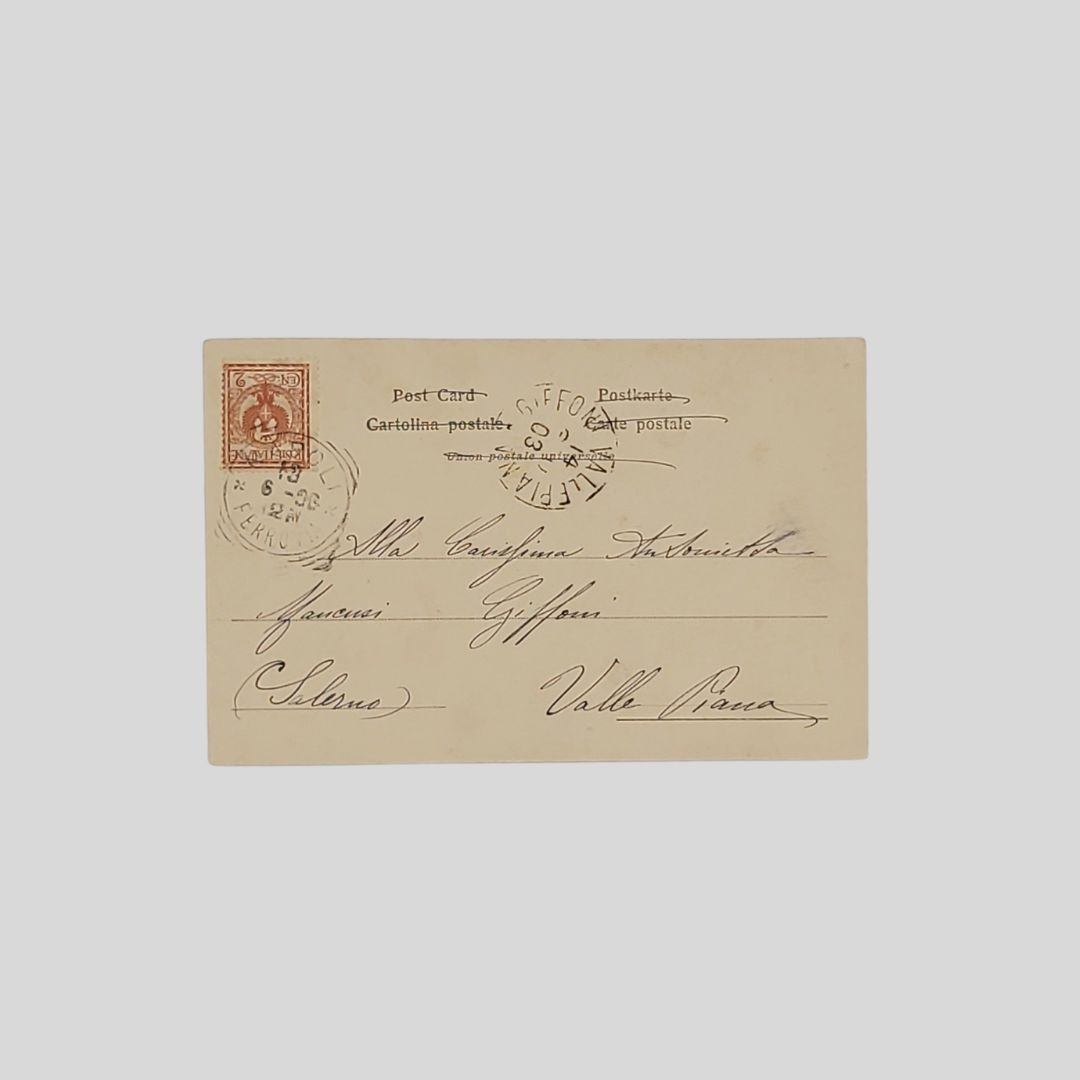 Post Card
Postkarte
Cartolina postale.
Carte postale
Union postale universelle
CENT. 2
POSTE ITALIANE
NAPOLI
FERROVIA
GIFFONI VALLE PIANA
Alla Carissima Antonietta
Mancusi Giffoni
(Salerno) Valle Piana